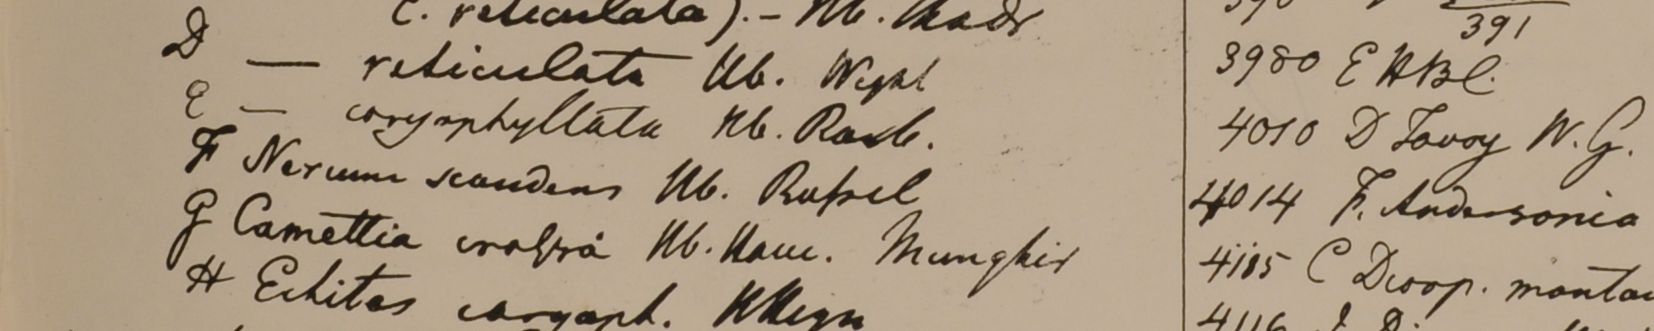 C. reticulata). - Hb. Madr
D — reticulata Hb. Wight
E — caryophyllata Hb. Roxb.
F Nerium scandens Hb. Russel
G Camettia Hb. Ham. Munghir
H Echites caryoph.
391
3980 E HBC.
4010 D Tavoy W. G.
4014 F. Andersonia
4185 C Diosp. montan
4116